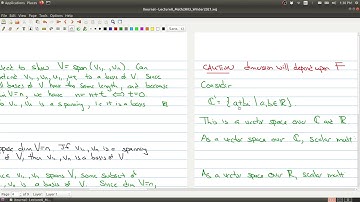 Applications Places
Journal - Lecture6_Math3M03_Winter2021.xoj
1:38 PM
need to show V = span (v₁, ,vₙ). Can
v₁, ,vₙ, to a basis of V. Since
bases of V have to same length, and because
V = n, we have n = n+t ⟺ t=0.
v₁, ,vₙ is a spanning, i.e. it is a basis
suppose dim V=n. If v₁, ,vₙ is a spanning
of V, then v₁, ,vₙ is a basis of V.
v₁, ,vₙ spans V, some subset of
,vₙ is a basis of V. Since dim V=n,
CAUTION dimension will depend upon F.
Consider
ℂ = { a+bi | a,b ∈ ℝ }
This is a vector space over ℂ and ℝ
As a vector space over ℂ, scalar mult
As a vector space over ℝ, scalar mult